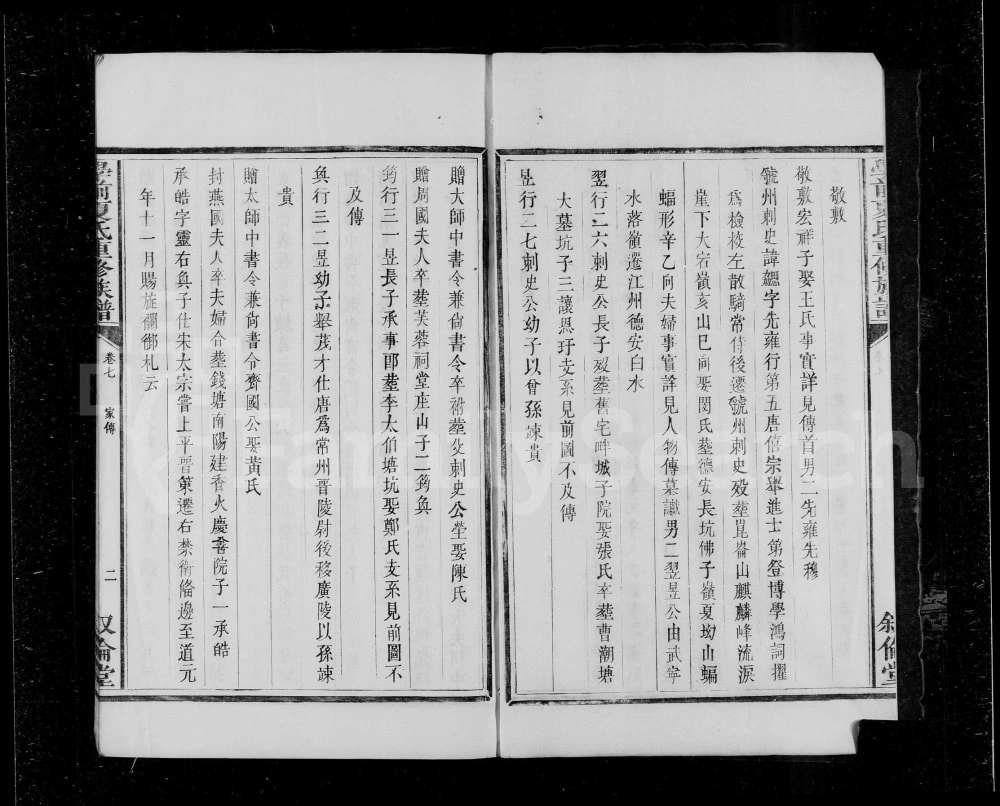 敬敷
敬敷宏祥子娶王氏事實詳見傳首男二先雍先穆
虢州刺史諱飊字先雍行第五唐僖宗舉進士第登博學鴻詞擢
爲檢校左散騎常侍後遷虢州刺史歿塟崑崙山麒麟峰流淚
崖下大宕嶺亥山巳向娶閔氏塟德安長坑佛子嶺夏坳山蝙
蝠形辛乙向夫婦事實詳見人物傳墓讖男二翌昱公由武寧
水落嶺遷江州德安白水
翌行二六刺史公長子歿塟舊宅畔城子院娶張氏卒塟曹潮塘
大墓坑子三讓恩玗支系見前圖不及傳
昱行二七刺史公幼子以曾孫竦貴
贈大師中書令兼尙書令卒祔塟父刺史公塋娶陳氏
贈周國夫人卒塟芙蓉祠堂庄山子二筠奐
筠行三一昱長子承事郎塟李大伯塘坑娶鄭氏支系見前圖不
及傳
奐行三二昱幼子舉茂才仕唐爲常州晋陵尉後移廣陵以孫竦
貴
贈太師中書令兼尙書令齊國公娶黃氏
封燕國夫人卒夫婦合塟錢塘南陽建香火慶善院子一承皓
承皓字靈右奐子仕宋太宗嘗上平晋策遷右禁衛偹邊至道元
年十一月賜旌儞御札云
學前夏氏重修族譜
卷七
家傳
二
叙倫堂